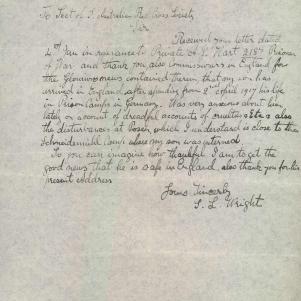 To Sect of S. Australian Red Cross Society
Sir
Received your letter dated
4th Jan in reference to Private S. L. Wart 2187 Prisoner
of War and thank you also Commissioners in England for
the glorious news contained therein, that my son has
arrived in England after spending from 2nd April 1917 his life
in Prison Camps in Germany. Was very anxious about him
lately on account of dreadful accounts of cruelties &c also
the disturbances at Posen which I understand is close to the
Schneidemuhl Camp where my son was interned
So you can imagine how thankful I am to get the
good news that he is safe in England, also thank you for his
present address
Yours Sincerely
S. L. Wright